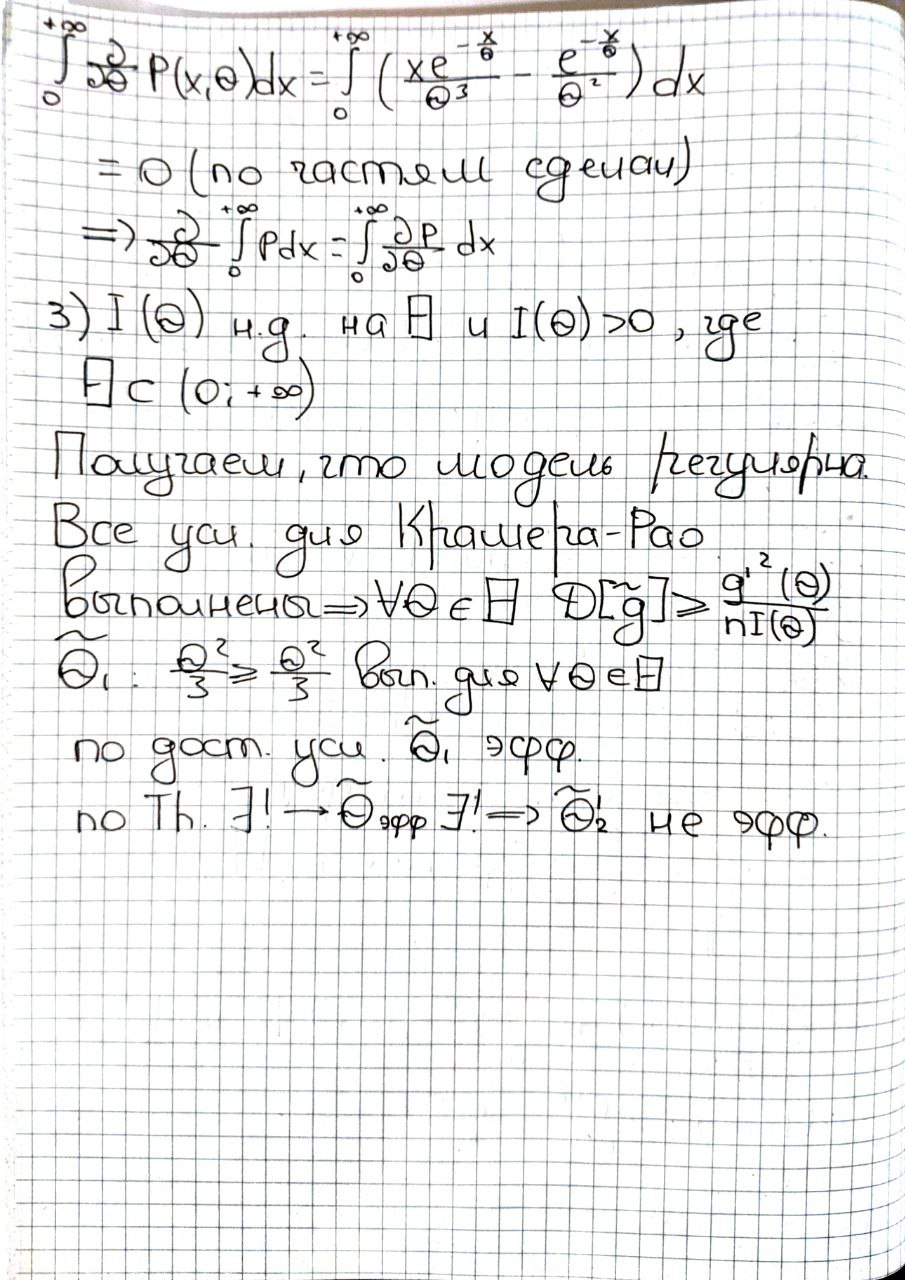 ∫₀^{+∞} ∂/∂Θ P(x,Θ)dx = ∫₀^{+∞} (xe^{-x/Θ}/Θ³ - e^{-x/Θ}/Θ²) dx
= 0 (по частям сделал)
=> ∂/∂Θ ∫₀^{+∞} Pdx = ∫₀^{+∞} ∂P/∂Θ dx
3) I(Θ) н.д. на Ξ и I(Θ)>0, где
Ξ ⊂ (0; +∞)
Получаем, что модель регулярна.
Все усл. для Крамера-Рао
выполнены => ∀Θ∈Ξ D[g̃] ≥ g'²(Θ)/nI(Θ)
Θ̃₁: Θ²/3 ≥ Θ²/3 вып. для ∀Θ∈Ξ
по дост. усл. Θ̃₁ эфф.
по Th. ∃! → Θ̃эфф ∃! => Θ̃₂' не эфф.